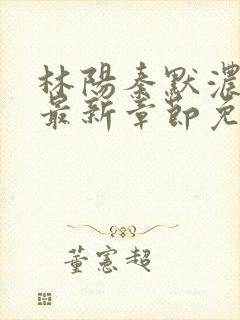 林陽秦默濃
最新章節免
董憲超